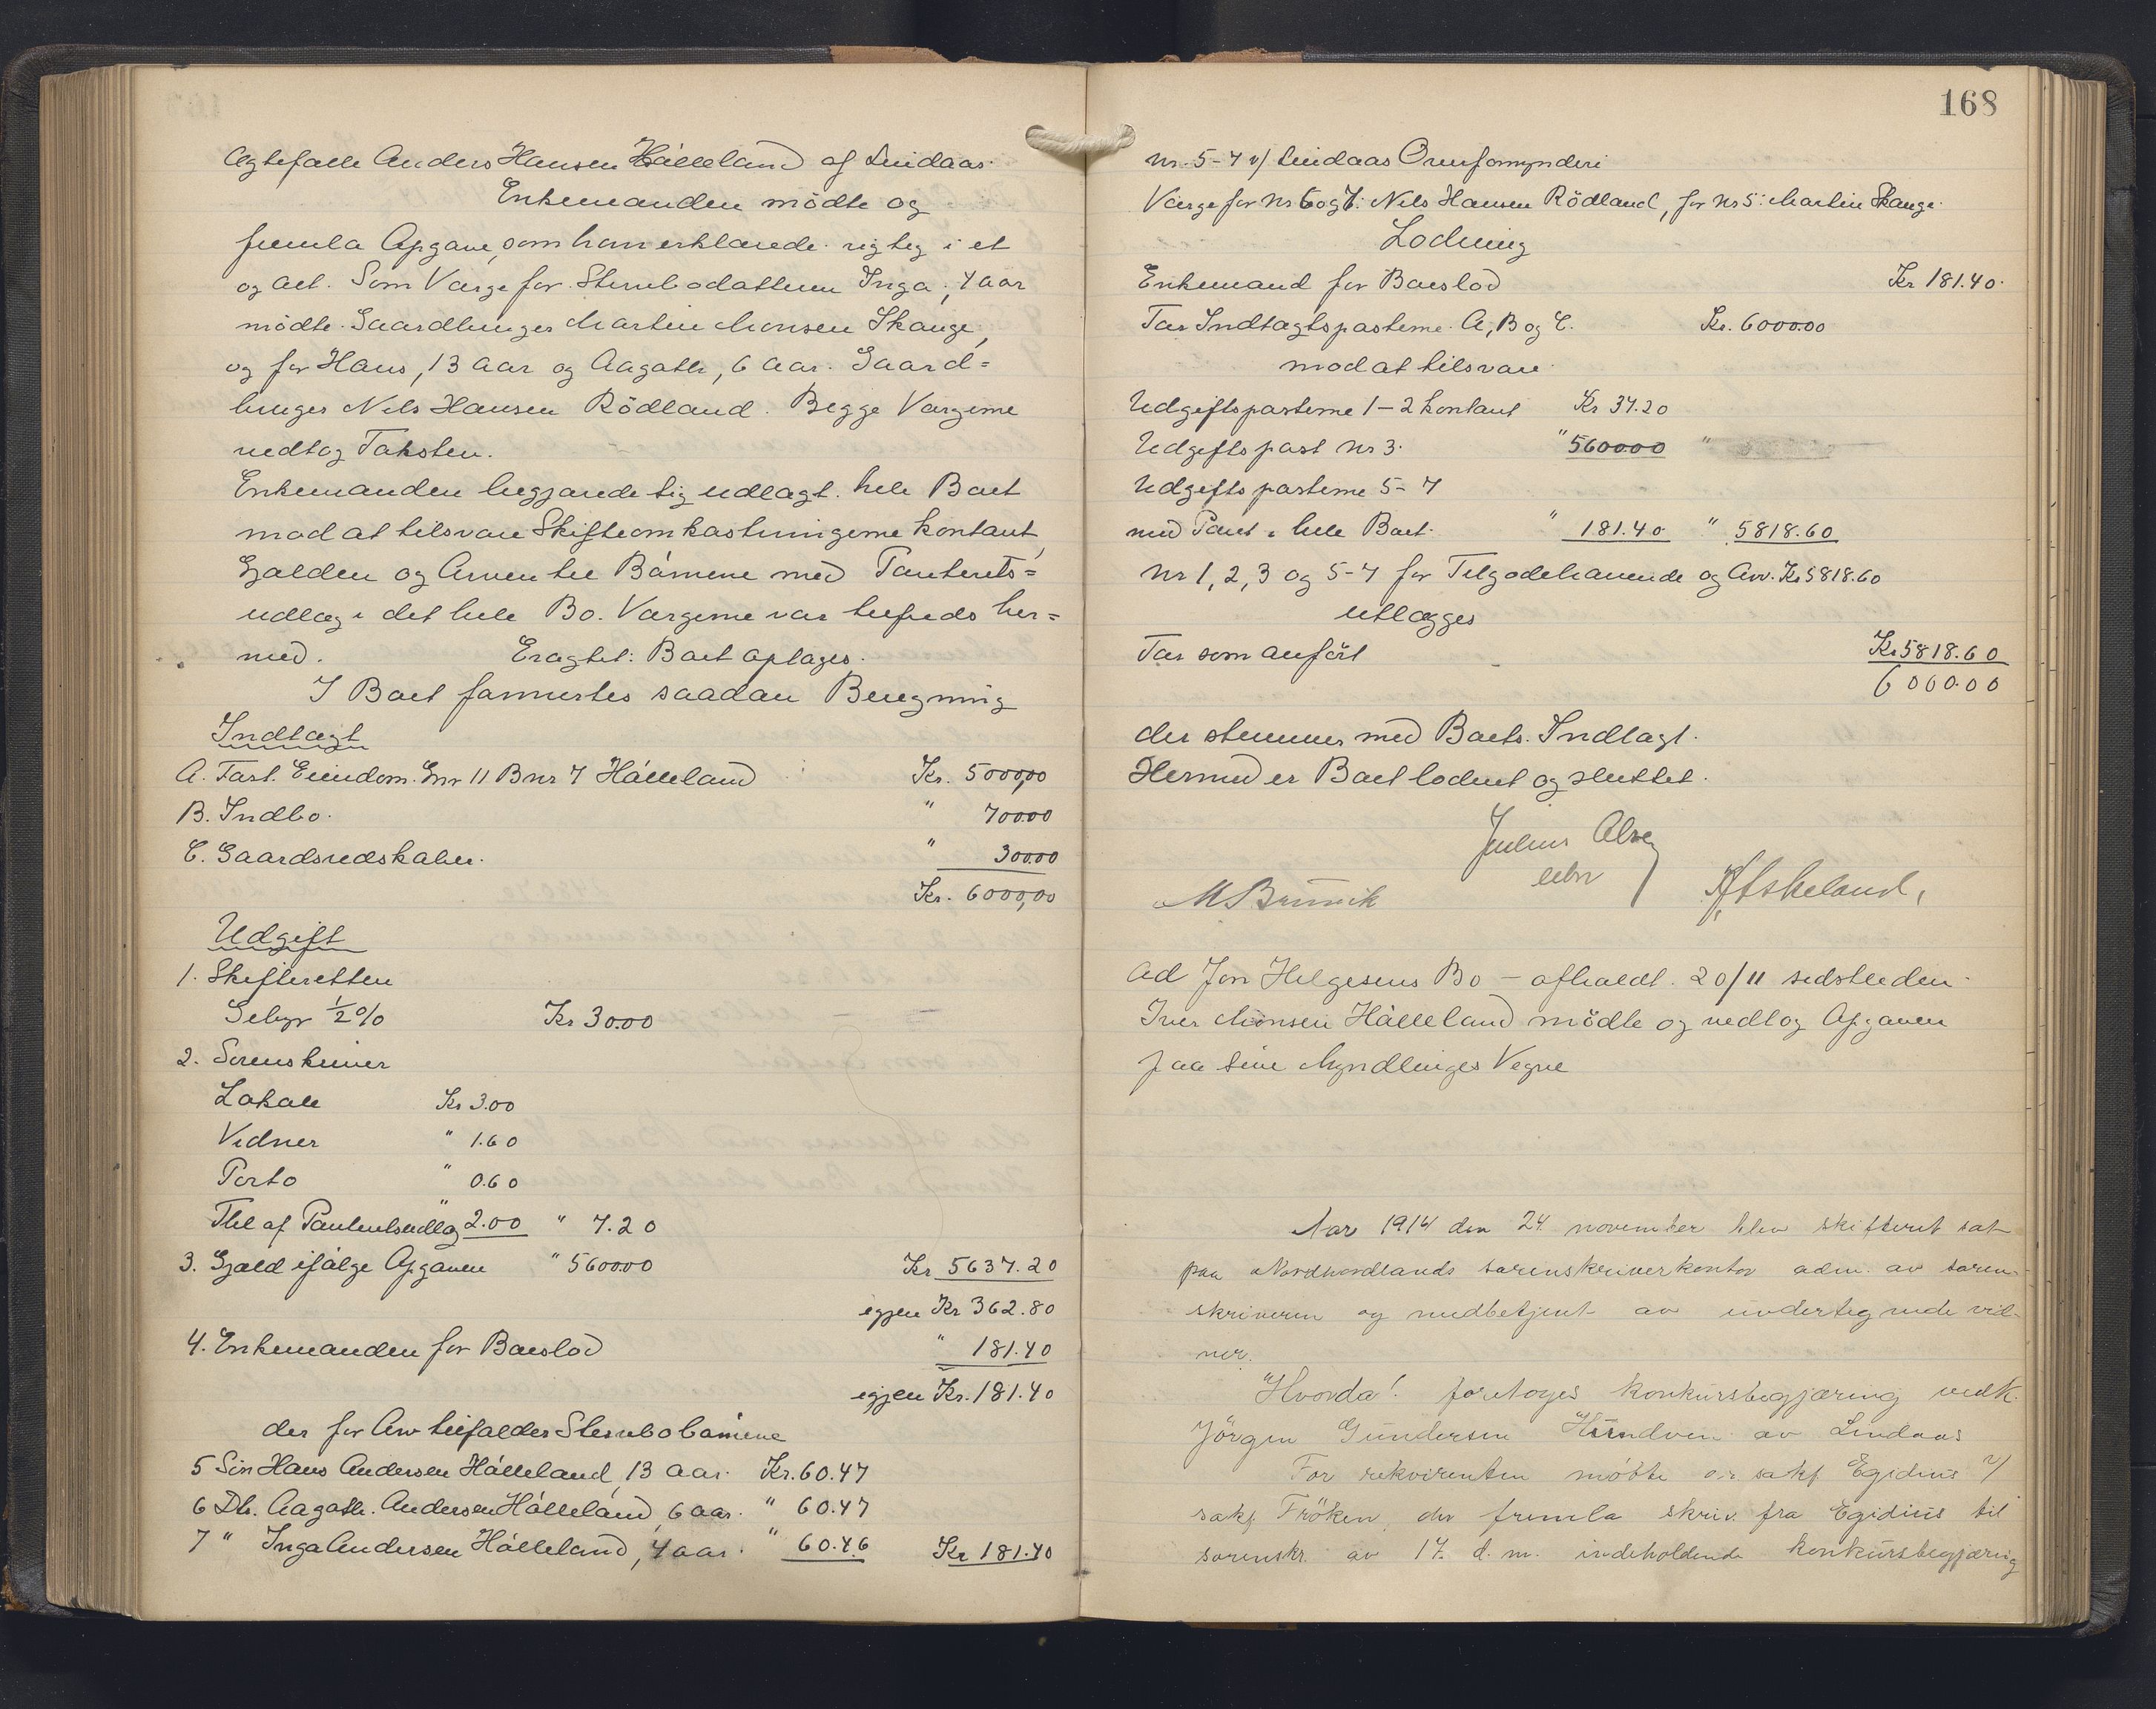 Ægtefælle Anders Hansen Hálleland af Lindaas.
Enkemanden mödte og
fremla Opgave, som han erklærede rigtig i et
og alt. Som Værge for Stervbodatteren Inga, 4 aar
mödte Gaardbruger Martin Monsen Skauge,
og for Hans, 13 aar og Aagathe, 6 aar. Gaard=
bruger Nils Hansen Rödland. Begge Værgerne
vedtog Taksten.
Enkemanden begjærede sig udlagt hele Boet
mod at tilsvare Skifteomkostningerne kontant,
Gjælden og Arven til Bårnene med Panterets=
udlæg i det hele Bo. Værgerne var tilfreds her=
med. Eragtet: Boet optages.
I Boet formertes saadan Beregning
Indtægt
A. Fast Eiendom. Gnr 11 Bnr 7 Hålleland Kr. 5000,00
B. Indbo. " 700.00
C. Gaardsredskaber. " 300.00
Kr. 6000,00
Udgift
1. Skifteretten
Gebyr ½ % Kr 30.00
2. Sorenskriver
Lokale Kr 3.00
Vidner " 1.60
Porto " 0.60
Thl af Panteretsudlæg 2.00 " 7.20
3. Gjæld ifålge Opgaven " 5600.00 Kr 5637.20
igjen Kr 362.80
4. Enkemanden for Boeslod " 181.40
igjen Kr. 181.40
der for Arv tilfalder Stervbobårnene
5 Sön Hans Andersen Hålleland, 13 aar. Kr. 60.47
6 Dtr. Aagathe Andersen Hålleland, 6 aar. " 60.47
7 " Inga Andersen Hålleland, 4 aar. " 60.46 Kr 181.40
168
Nr. 5-7 v/ Lindaas Overformynderi
Værge for Nr 6 og 7: Nils Hansen Rödland, for Nr 5: Martin Skauge.
Lodning
Enkemand for Boeslod Kr 181.40.
Tar Indtægtsposterne A, B og C. Kr. 6000.00
mod at tilsvare
Udgiftsposterne 1-2 kontant Kr 37.20
Udgiftspost Nr 3. " 5600.00 "
Udgiftsposterne 5-7
med Pant i hele Boet. " 181.40 " 5818.60
Nr 1, 2, 3 og 5-7 for Tilgodehavende og Arv. Kr 5818.60
utlægges
Tar som anfört Kr 5818.60
6000.00
der stemmer med Boets Indtægt.
Hermed er Boet loddet og sluttet.
Julius Alver
M Brunvik
Askeland,
Ad Jon Helgesens Bo – afholdt 20/11 sidstleden.
Iver Monsen Hålleland mödte og vedtog Opgaven
paa sine Myndlinges Vegne
Aar 1914 den 24 november blev skifteret sat
paa Nordhordlands sorenskriverkontor adm. av soren-
skriveren og medbetjent av undertegnede vid-
ner.
"Hvorda": foretoges konkursbegjæring vedk.
Jörgen Gundersen Hundven av Lindaas
For rekvirenten mötte o.r. sakf Egidius v/
sakf Fröken, der fremla skriv. fra Egidius til
sorenskr. av 17. d. m. indeholdende konkursbegjæring